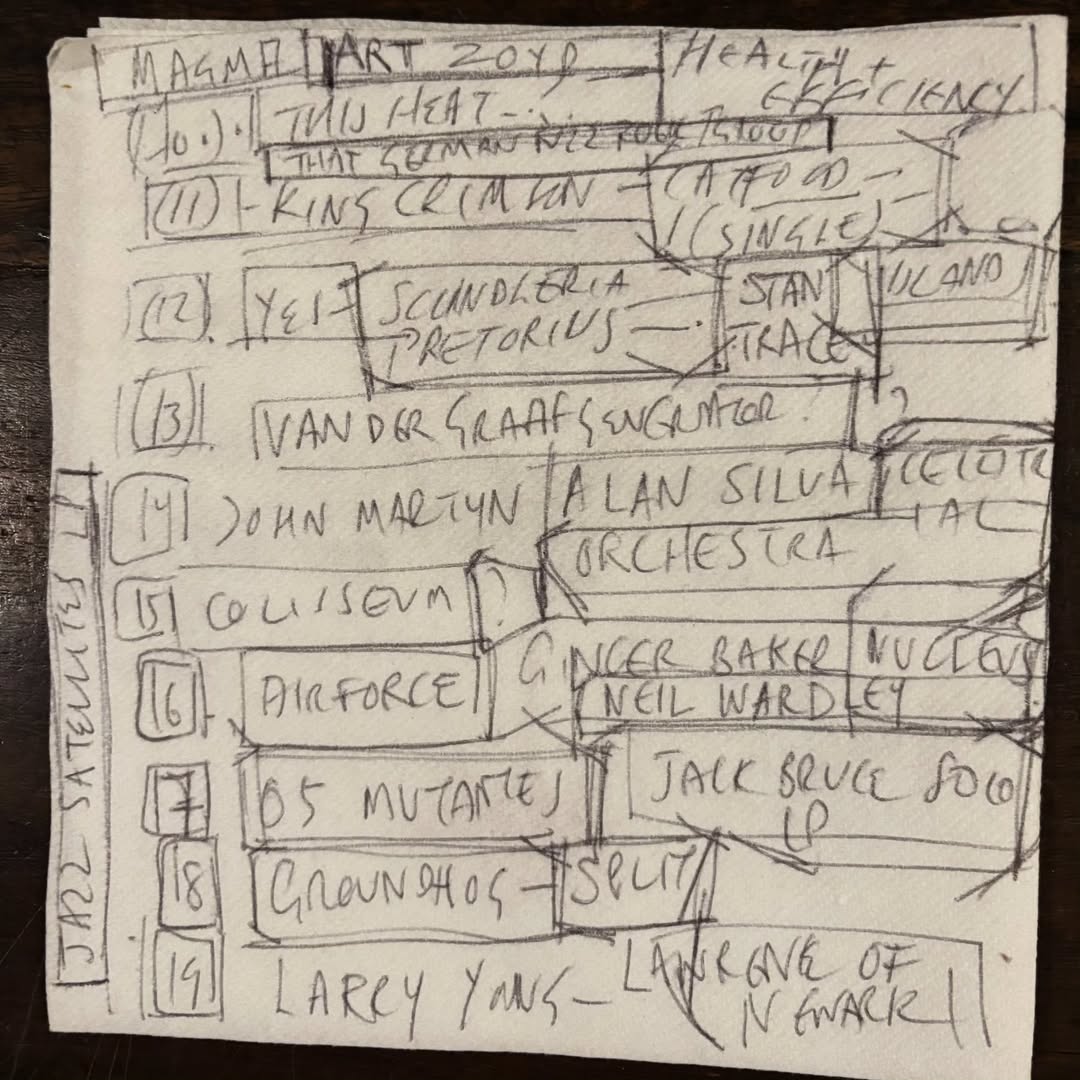 MAGMA ART ZOYD HEALTH +
EFFICIENCY
(10.). THIS HEAT - ....
THAT GERMAN JAZZ ROCK GROUP
(11) - KING CRIMSON - CATFOOD -
(SINGLE) -
(12). YES - STAN
PRETORIUS - . TRACE
(13). VAN DER GRAAF GENERATOR ?
14 JOHN MARTYN ALAN SILVA CELESTR
IAL
ORCHESTRA
15 COLISSEUM ?
16 - AIRFORCE GINGER BAKER NUCLEUS
NEIL WARDLEY
17 OS MUTANTES JACK BRUCE SOLO
LP
18 GROUNDHOG - SPLIT
19 LARRY YOUNG - LAWRENCE OF
NEWARK
JAZZ SATELLITES LP